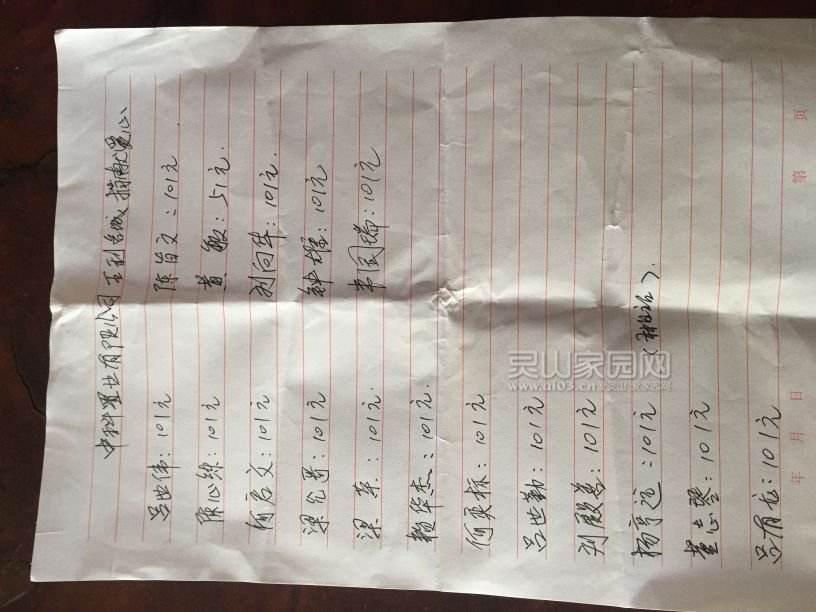 中科置业有限公司 王利台城 捐献爱心
吕世伟：101元 陈首文：101元
陈心铼：101元 黄 敏：51元
何启文：101元 刘向华：101元
梁 ：101元 钟雄：101元
梁 军：101元 韦国瑞：101元
赖华杰：101元
何奕标：101元
吕世勤：101元
刘殿善：101元
杨 远：101元
董志 ：101元
吕有龙：101元
年 月 日 第 页
灵山家园网
www.qio3.cn爱灵山 爱家园网